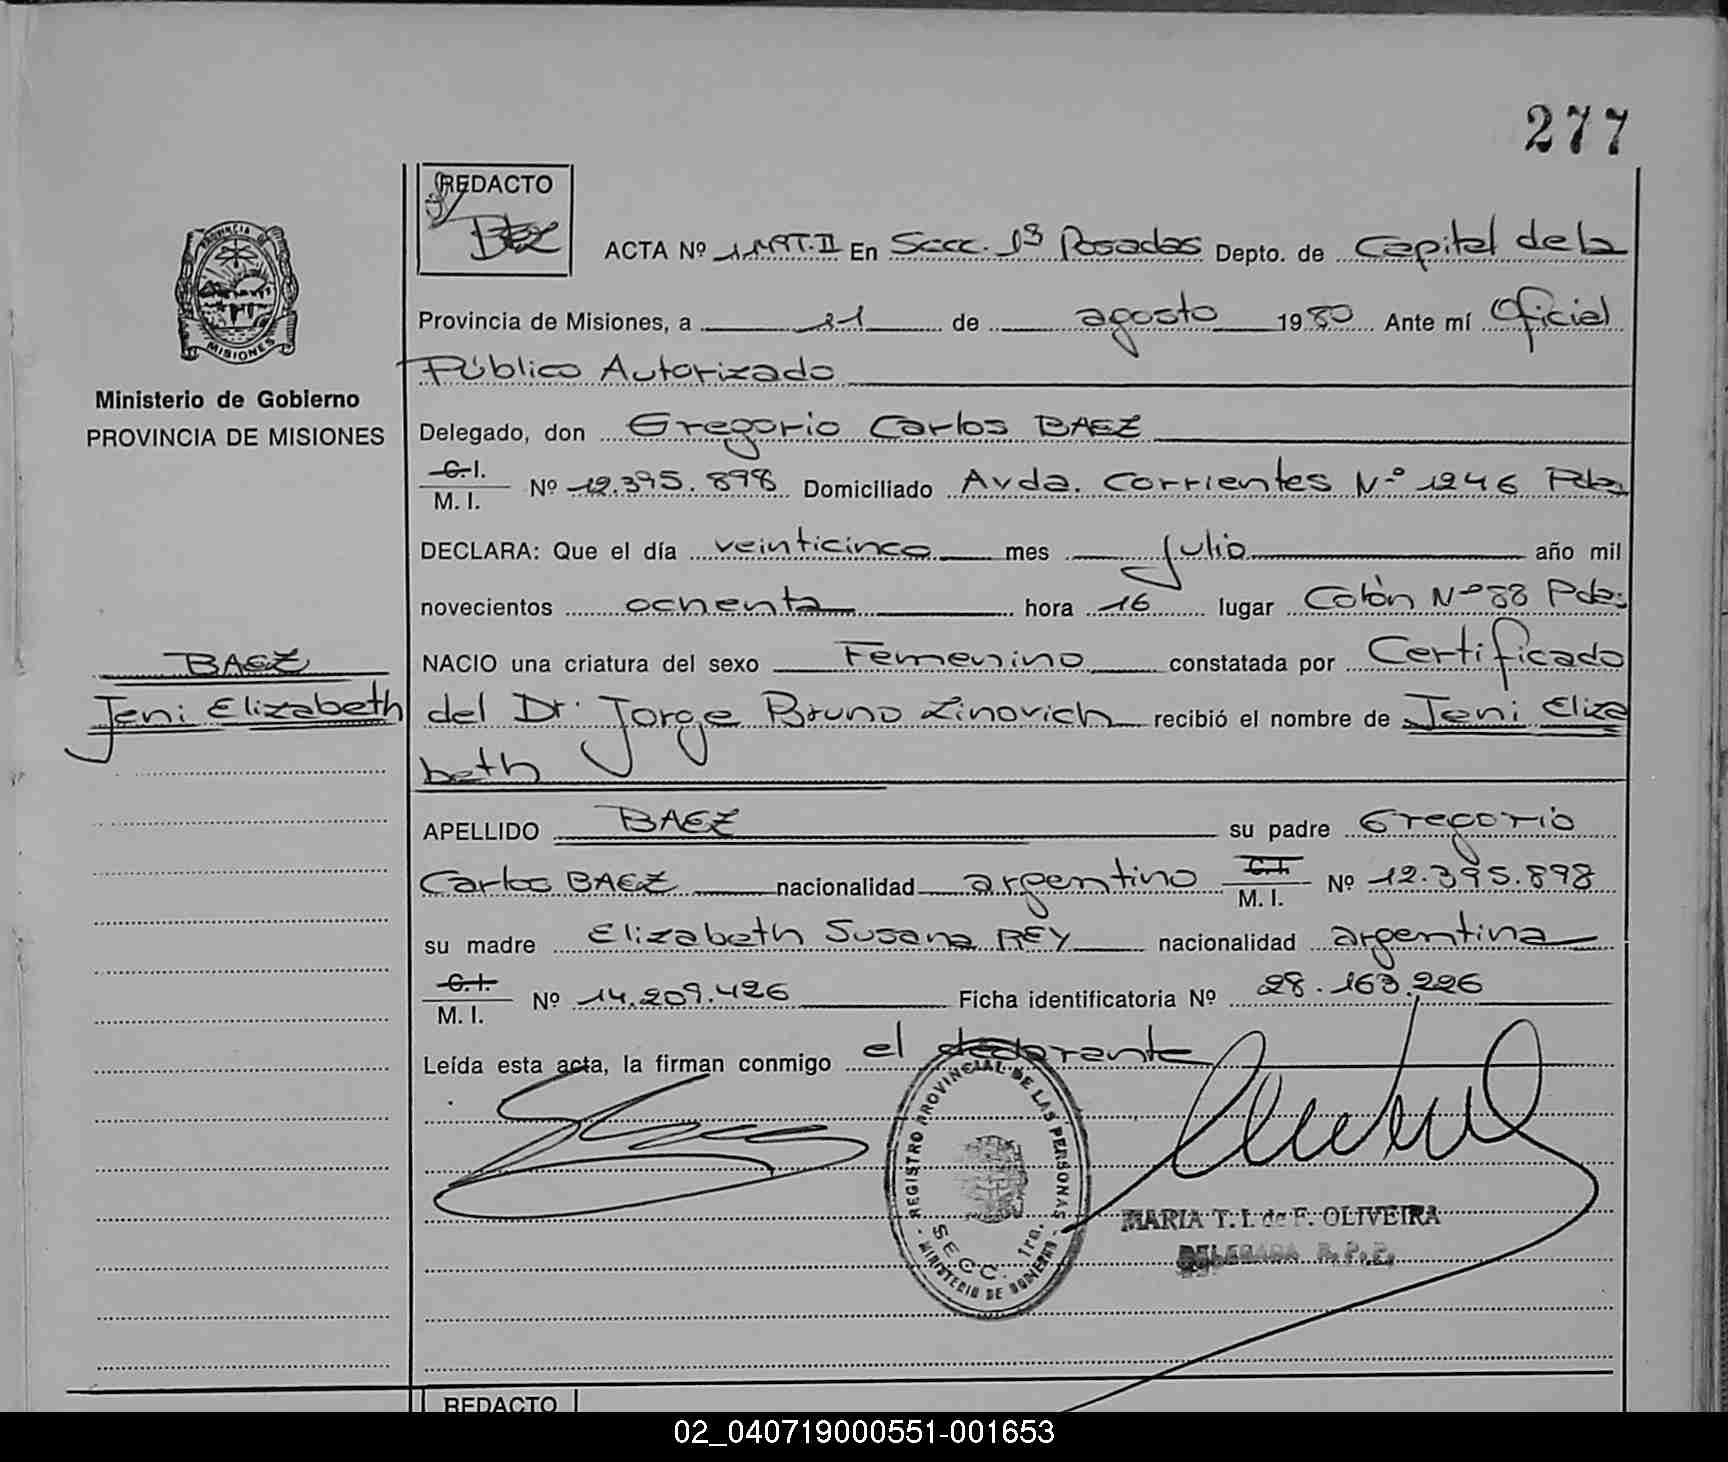 277
REDACTO
BAEZ
ACTA Nº 1 MAT.II En Secc. 1ª Posadas Depto. de Capital de la
PROVINCIA DE
MISIONES
Provincia de Misiones, a 21 de agosto 1980 Ante mí Oficial
Público Autorizado
Ministerio de Gobierno
PROVINCIA DE MISIONES
Delegado, don Gregorio Carlos BAEZ
C.I.
M. I. Nº 12.395.898 Domiciliado Avda. Corrientes Nº 1246 Pdas
DECLARA: Que el día veinticinco mes julio año mil
novecientos ochenta hora 16 lugar Colón Nº 88 Pdas
BAEZ
NACIO una criatura del sexo Femenino constatada por Certificado
Jeni Elizabeth
del Dr. Jorge Bruno Zinovich recibió el nombre de Jeni Eliza
beth
APELLIDO BAEZ su padre Gregorio
Carlos BAEZ nacionalidad argentino C.I. M. I. Nº 12.395.898
su madre Elizabeth Susana REY nacionalidad argentina
C.I.
M. I. Nº 14.209.426 Ficha identificatoria Nº 28.163.226
Leída esta acta, la firman conmigo el declarante
REGISTRO PROVINCIAL DE LAS PERSONAS
SECC. 1ra.
MINISTERIO DE GOBIERNO
MARIA T. I. de F. OLIVEIRA
DELEGADA R. P. P.
REDACTO
02_040719000551-001653